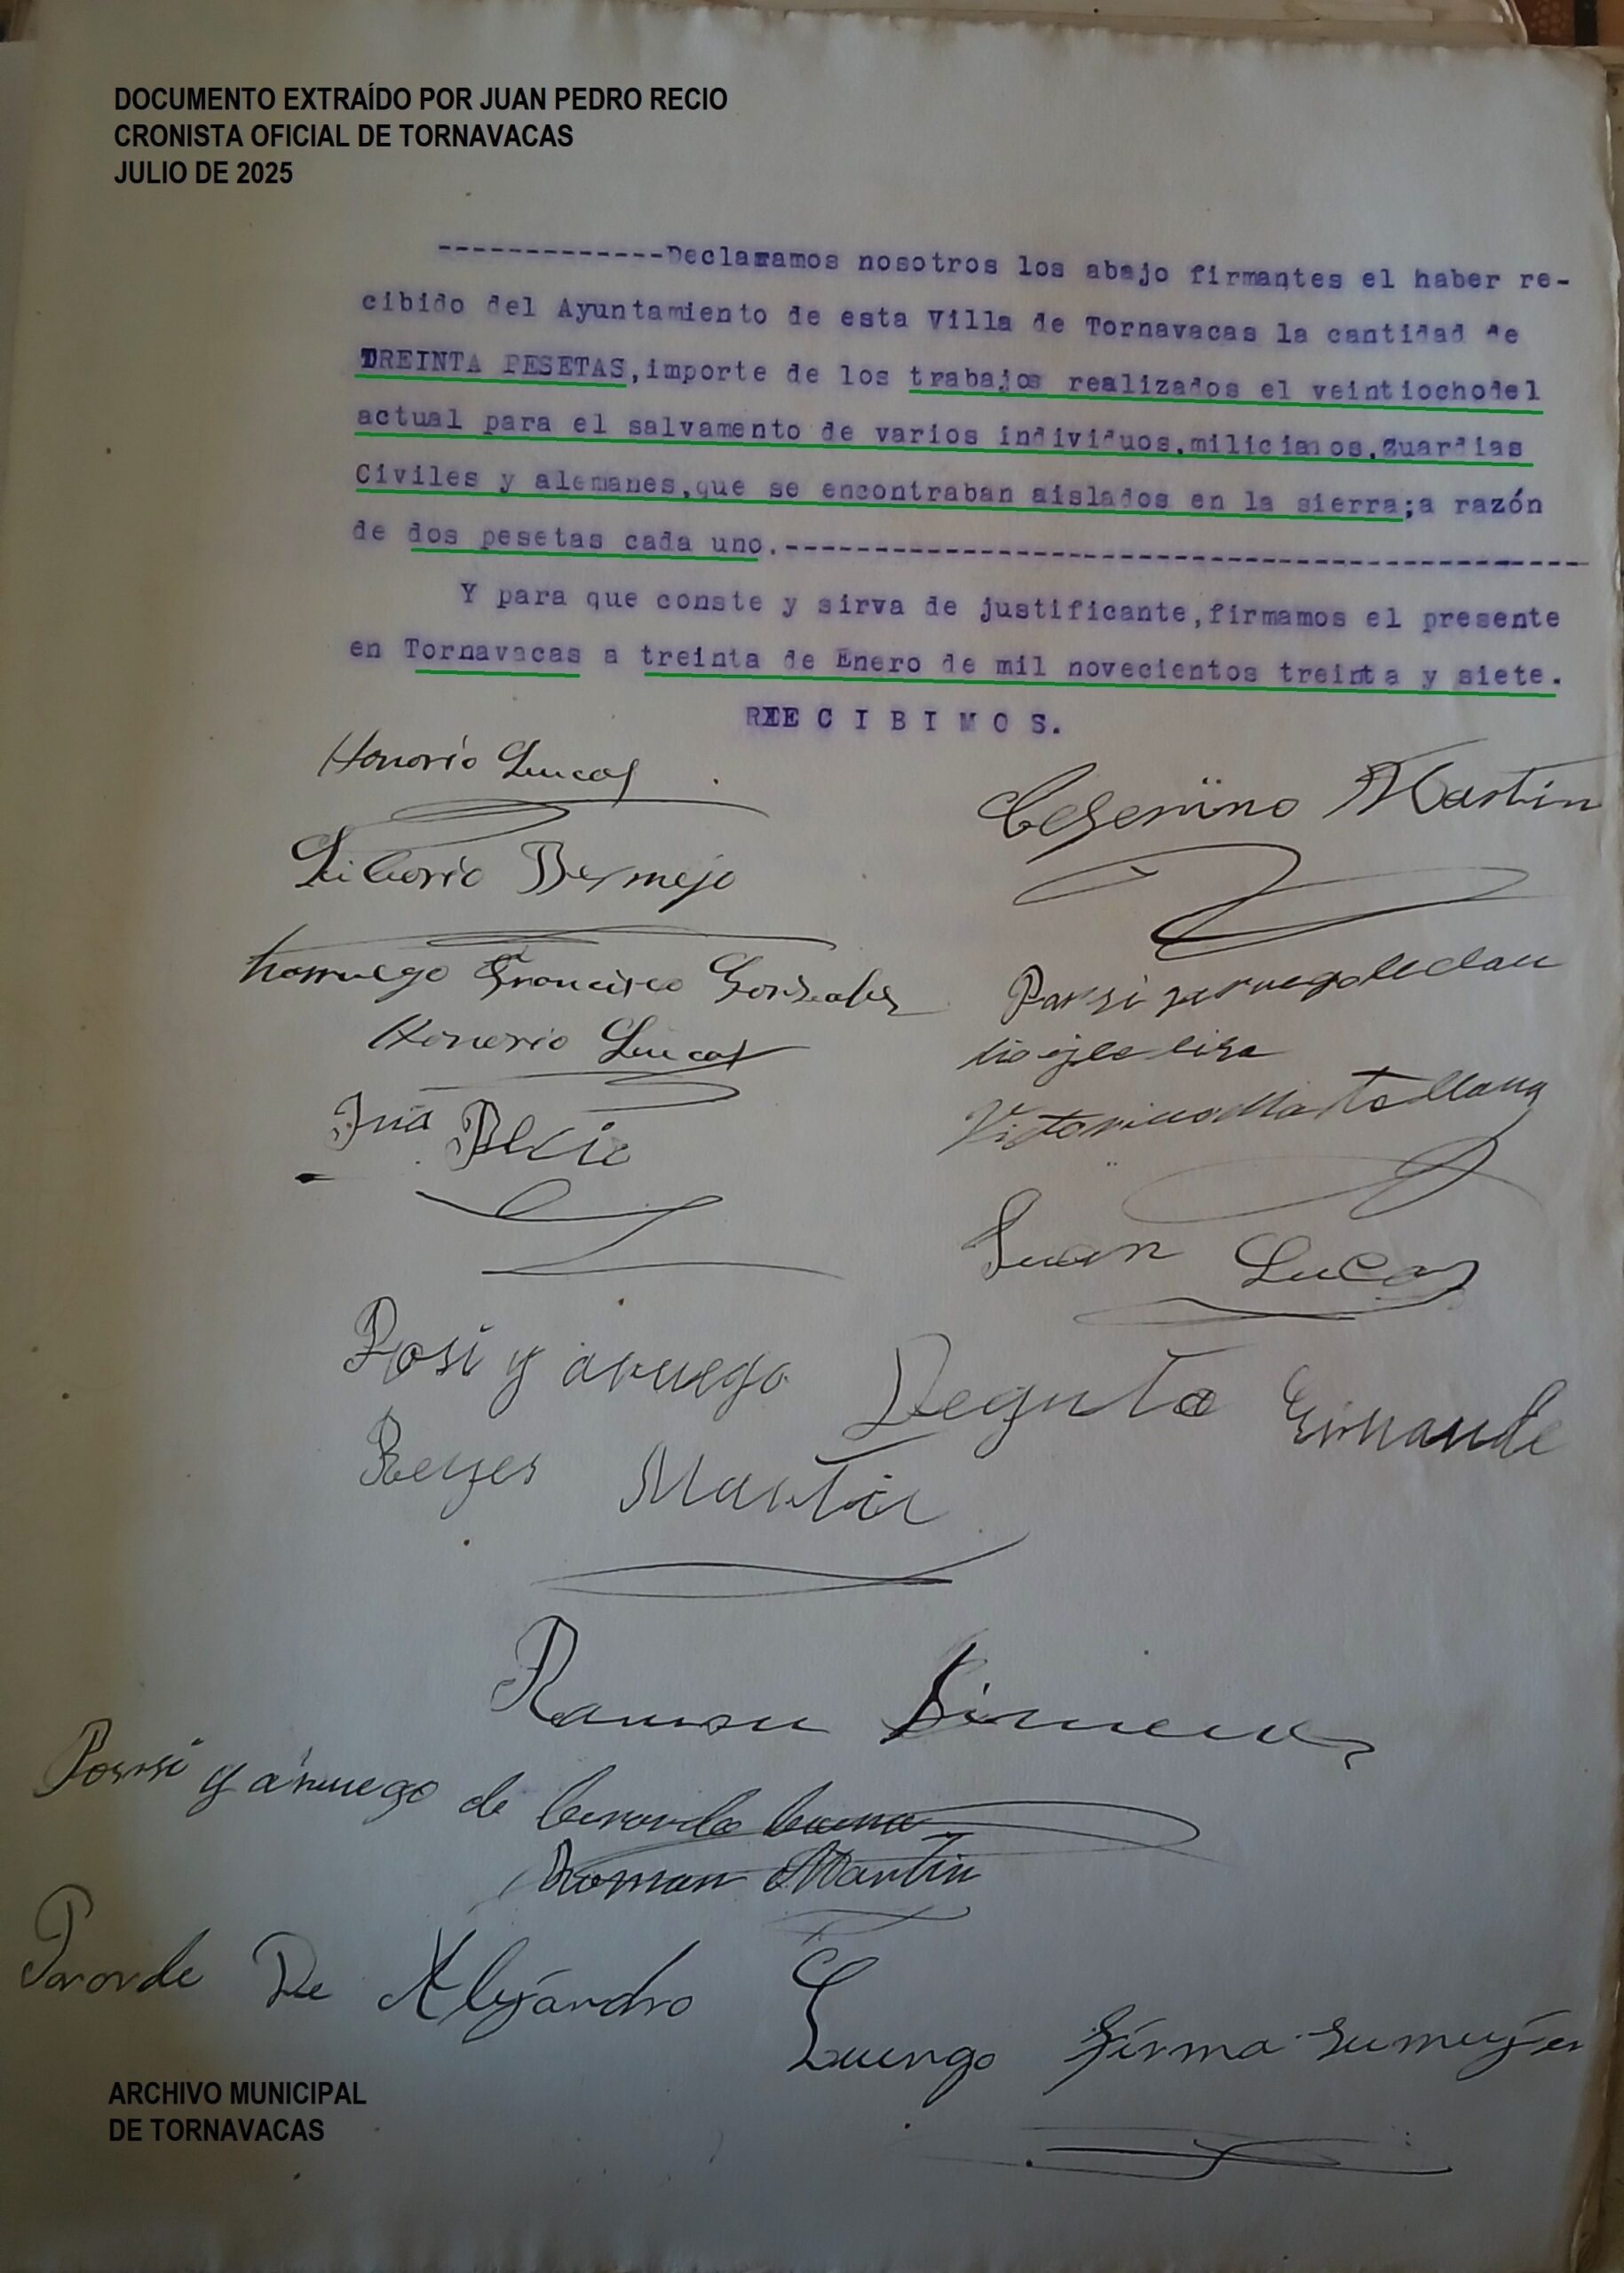 DOCUMENTO EXTRAÍDO POR JUAN PEDRO RECIO
CRONISTA OFICIAL DE TORNAVACAS
JULIO DE 2025
-------------Declaramos nosotros los abajo firmantes el haber re-
cibido del Ayuntamiento de esta Villa de Tornavacas la cantidad de
TREINTA PESETAS,importe de los trabajos realizados el veintiochodel
actual para el salvamento de varios individuos,milicianos,guardias
Civiles y alemanes,que se encontraban aislados en la sierra;a razón
de dos pesetas cada uno.----------------------------------------------
Y para que conste y sirva de justificante,firmamos el presente
en Tornavacas a treinta de Enero de mil novecientos treinta y siete.
REECIBIMOS.
Honorio Lucas
Ceserino Martin
Liborio Bermejo
Francisco Gonzalez
Honorio Lucas
Victorino Matallana
Juan Lucas
Posi y aruego
Reyes Martin
Ramon
Porsi y aruego de
Roman Martin
Pororde De Alejandro Luengo firma sumujer
ARCHIVO MUNICIPAL
DE TORNAVACAS